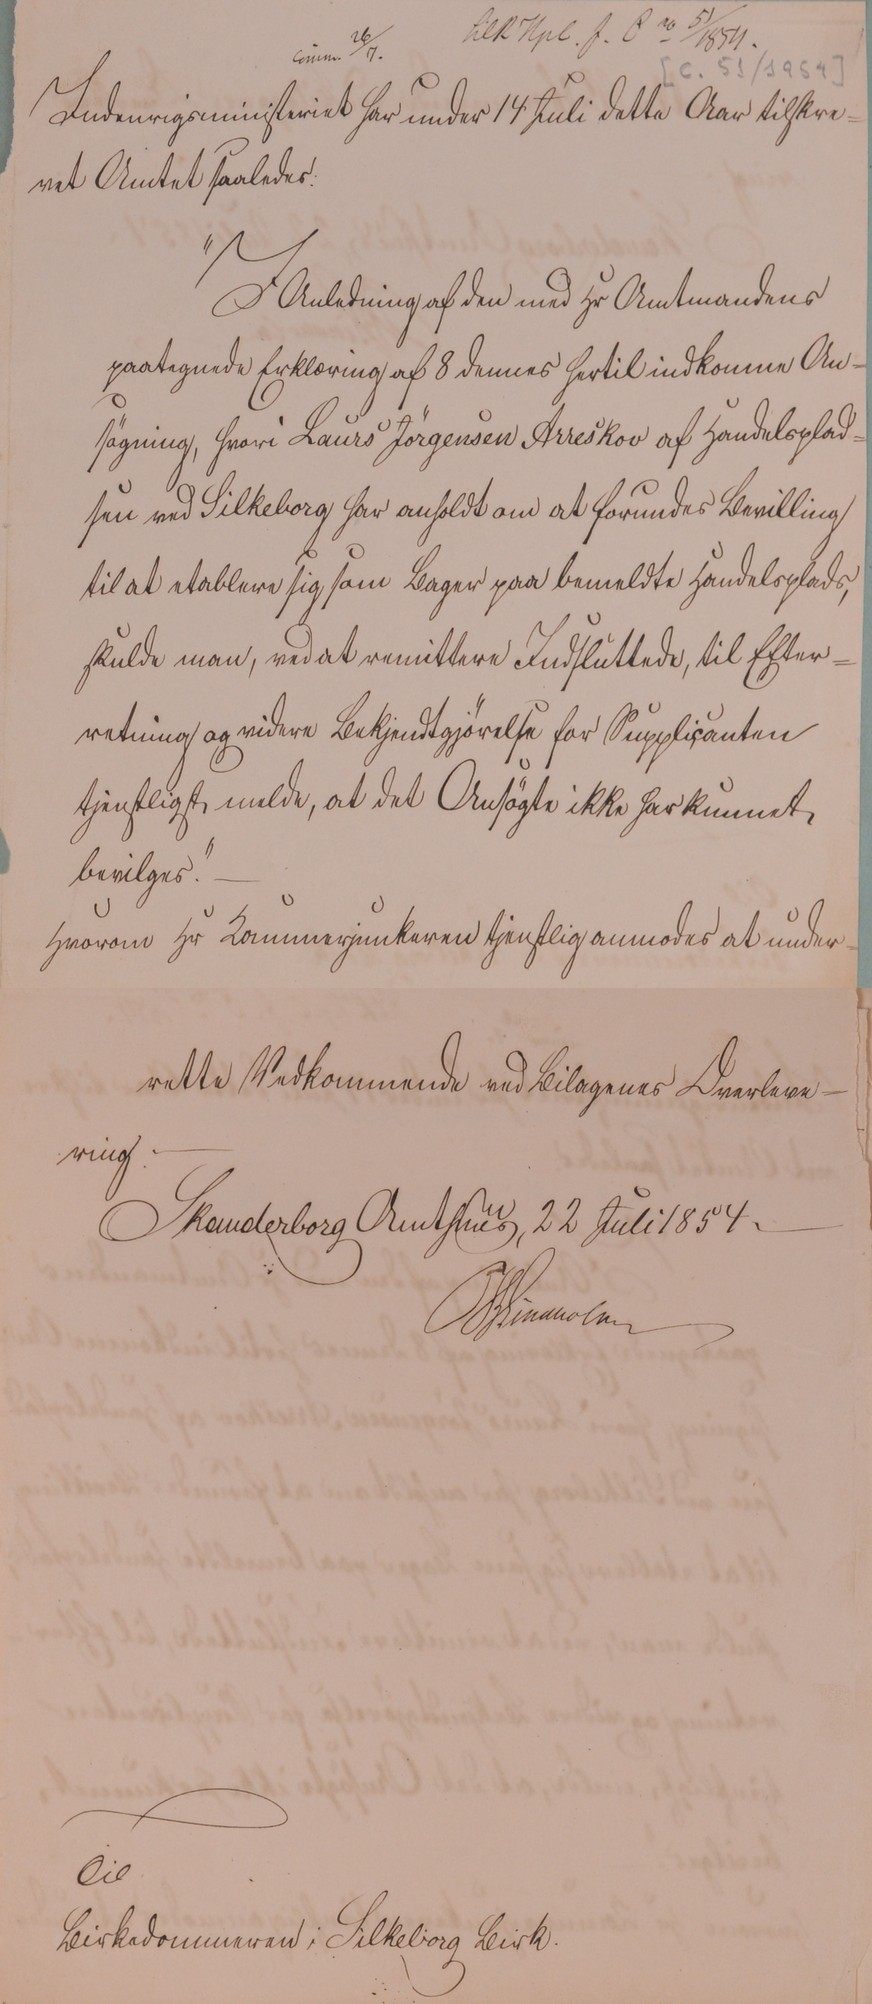 Silk Hpl. J. C no 51/1854.
comm. 26/7.
[C. 51/1954]
Indenrigsministeriet har under 14 Juli dette Aar tilskre=
vet Amtet saaledes:
"I Anledning af den med Hr Amtmandens
paategnede Erklæring af 8 dennes hertil indkomne An-
søgning, hvori Laurs Jörgensen Arreskov af Handelsplad=
sen ved Silkeborg har anholdt om at forundes Bevilling
til at etablere sig som Bager paa bemeldte Handelsplads,
skulde man, ved at remittere Indsluttede, til Efter=
retning og videre Bekjendtgjörelse for Supplicanten
tjenstligst melde, at det Ansögte ikke har kunnet
bevilges."—
Hvorom Hr Kammerjunkeren tjenstlig anmodes at under-
rette Vedkommende ved Bilagenes Overleve—
ring.—
Skanderborg Amthuus, 22 Juli 1854.
Til
Birkedommeren i Silkeborg Birk.